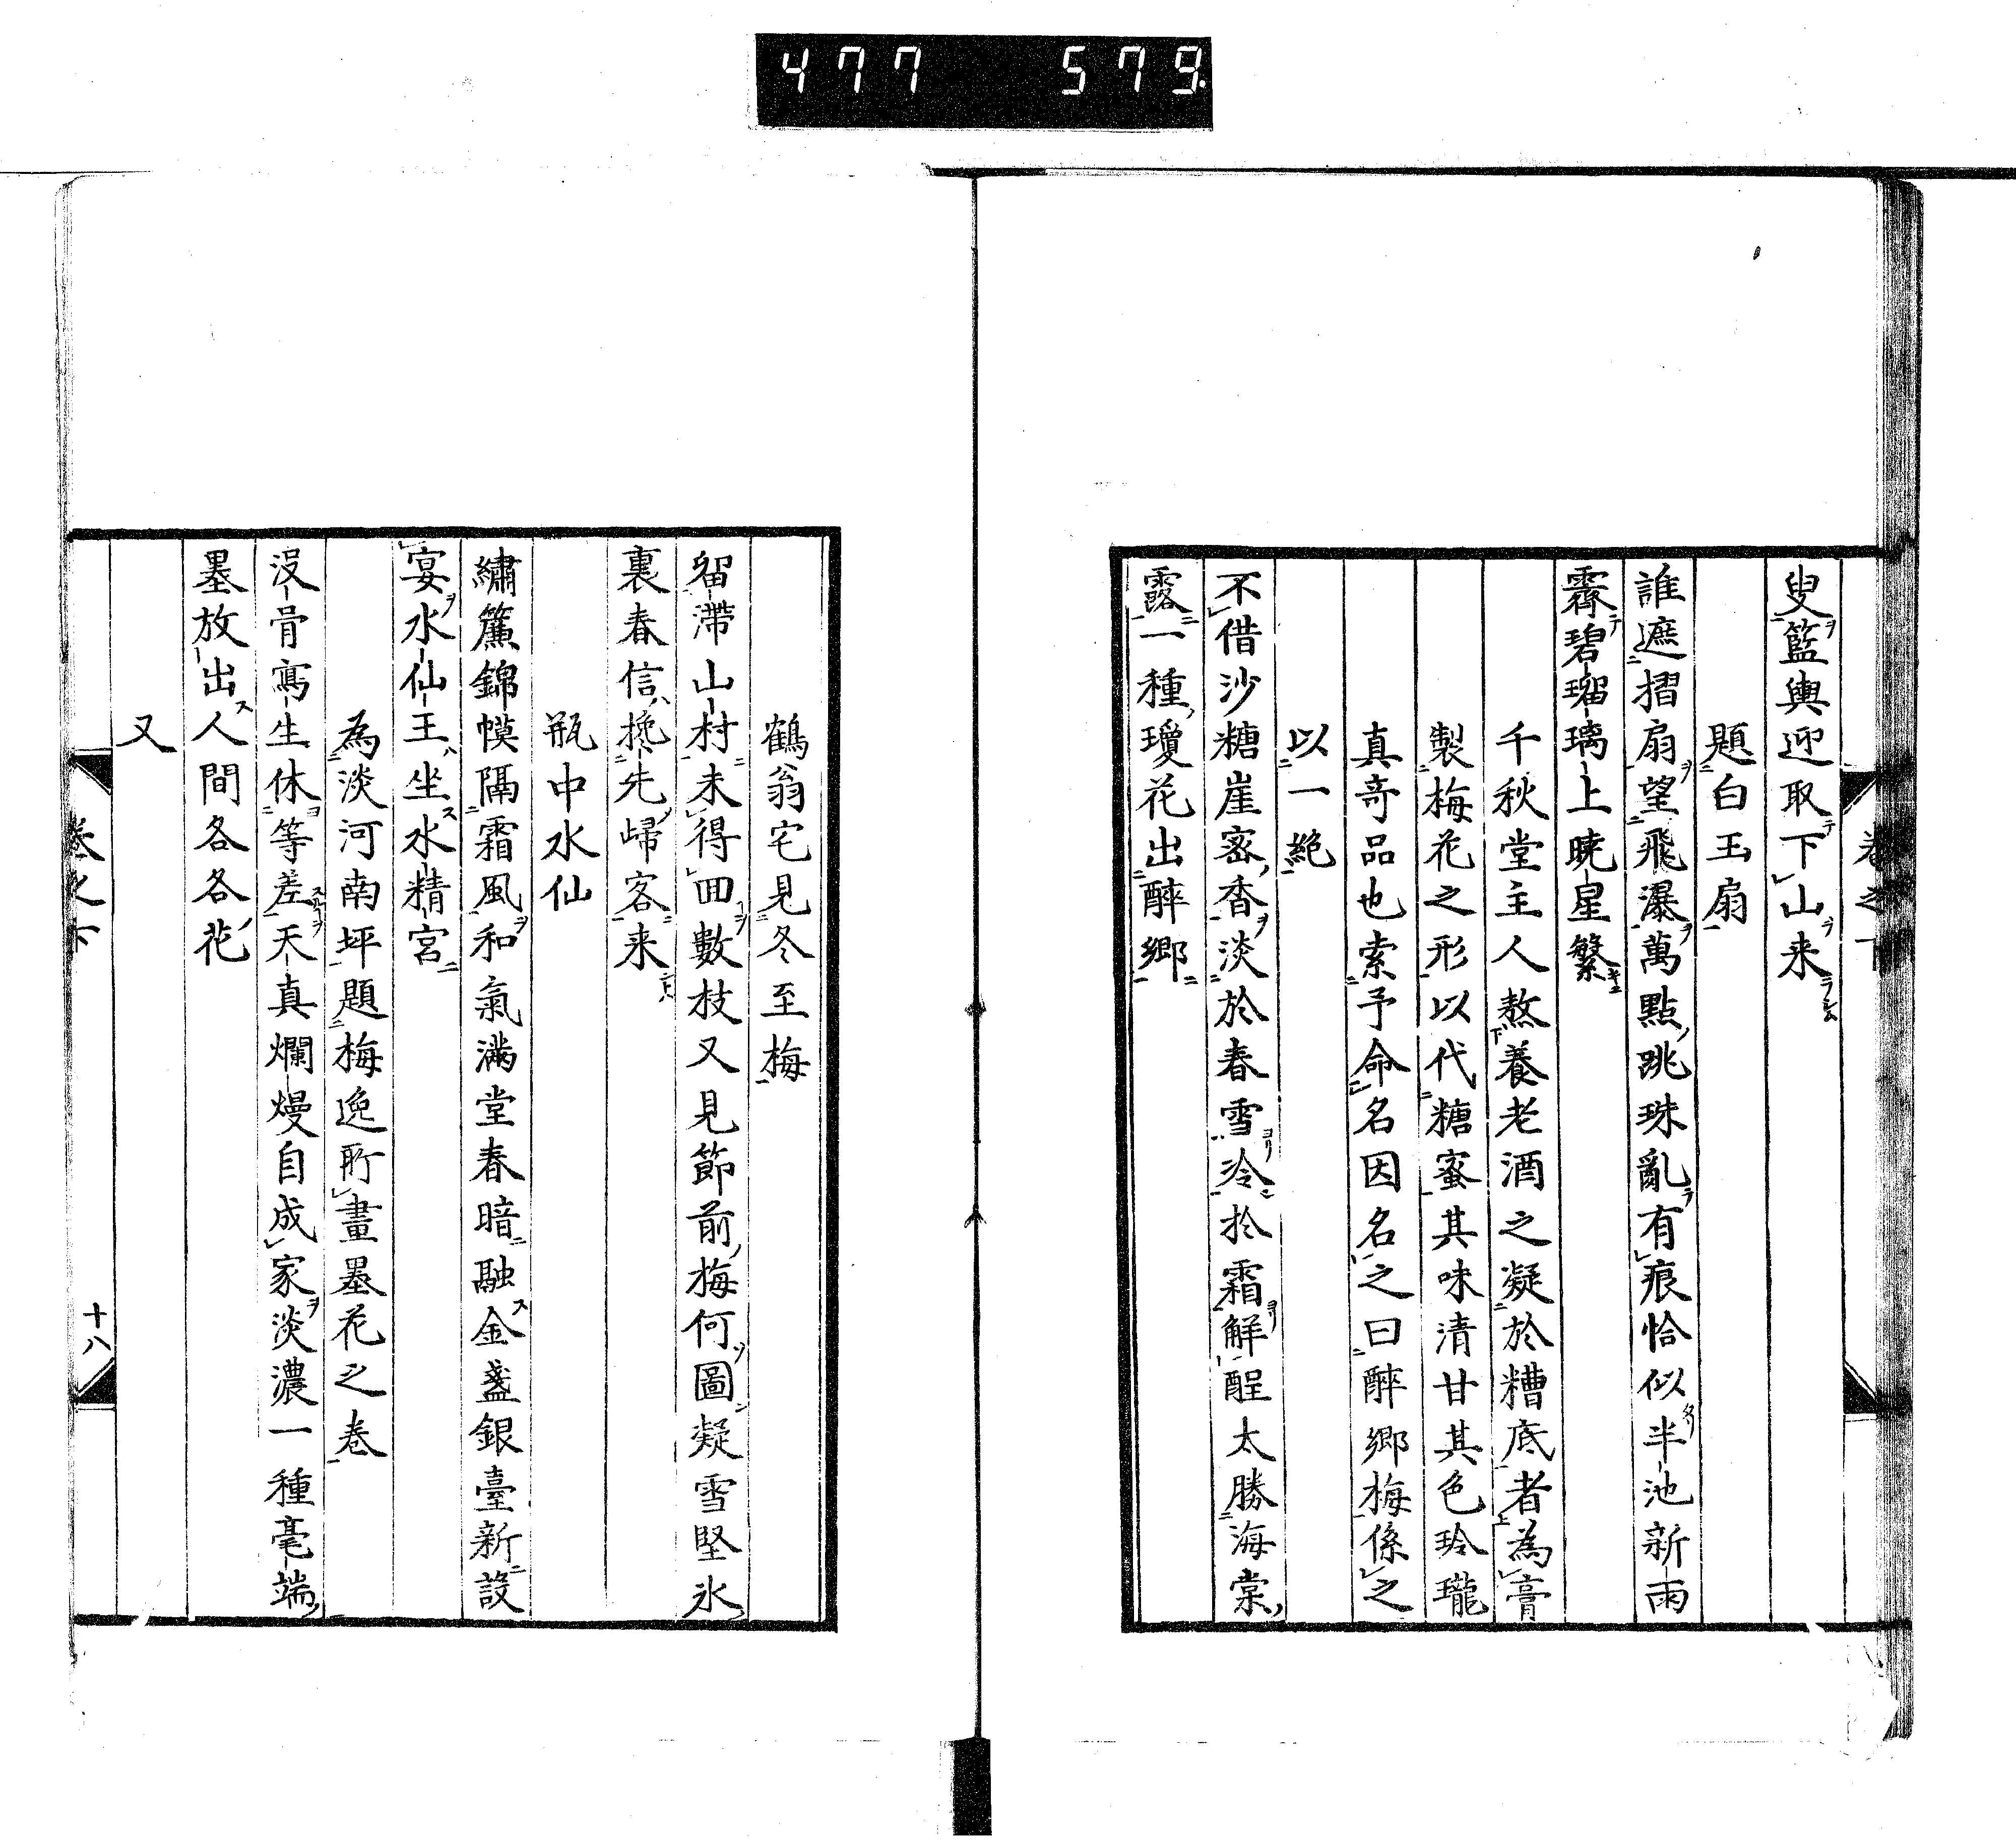 477 579
卷之下
叟籃輿迎取下山来
題白玉扇
誰遮摺扇望飛瀑萬點跳珠亂有痕恰似半池新雨
霽碧瑠璃上曉星繁
千秋堂主人熬養老酒之凝於糟底者為膏
製梅花之形以代糖蜜其味清甘其色玲瓏
真竒品也索予命名因名之曰醉鄉梅係之
以一絶
不借沙糖崖宻香淡於春雪冷於霜解酲太勝海棠
露一種瓊花出醉鄉
鶴翁宅見冬至梅
留滯山村未得回數枝又見節前梅何圖凝雪堅氷
裏春信挽先歸客来
瓶中水仙
繡簾錦幙隔霜風和氣滿堂春暗融金盞銀臺新設
宴水仙王坐水精宮
為淡河南坪題梅逸所畫墨花之卷
没骨寫生休等差天真爛熳自成家淡濃一種毫端
墨放出人間各各花
又
卷之下
十八